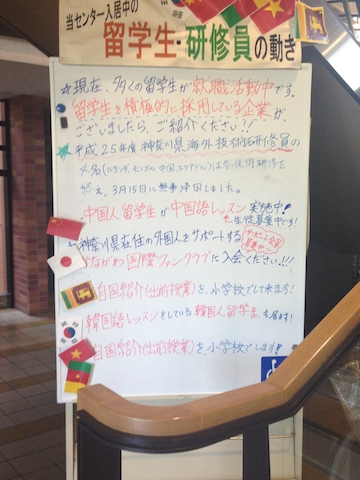 当センター入居中の
留学生・研修員の動き
☆現在、多くの留学生が就職活動中です。
留学生を積極的に採用している企業が
ございましたら、ご紹介ください!!
平成25年度神奈川県海外技術研修員の
終え、3月15日に無事帰国しました。
中国人留学生が中国語レッスン実施中!
生徒募集中です!
神奈川県在住の外国人をサポートする
かながわ国際ファンクラブに入会ください!!!
自国紹介(出前授業)を、小学校でして来ます!
韓国語レッスンをしている韓国人留学生も居ます!
自国紹介(出前授業)を、小学校でします!